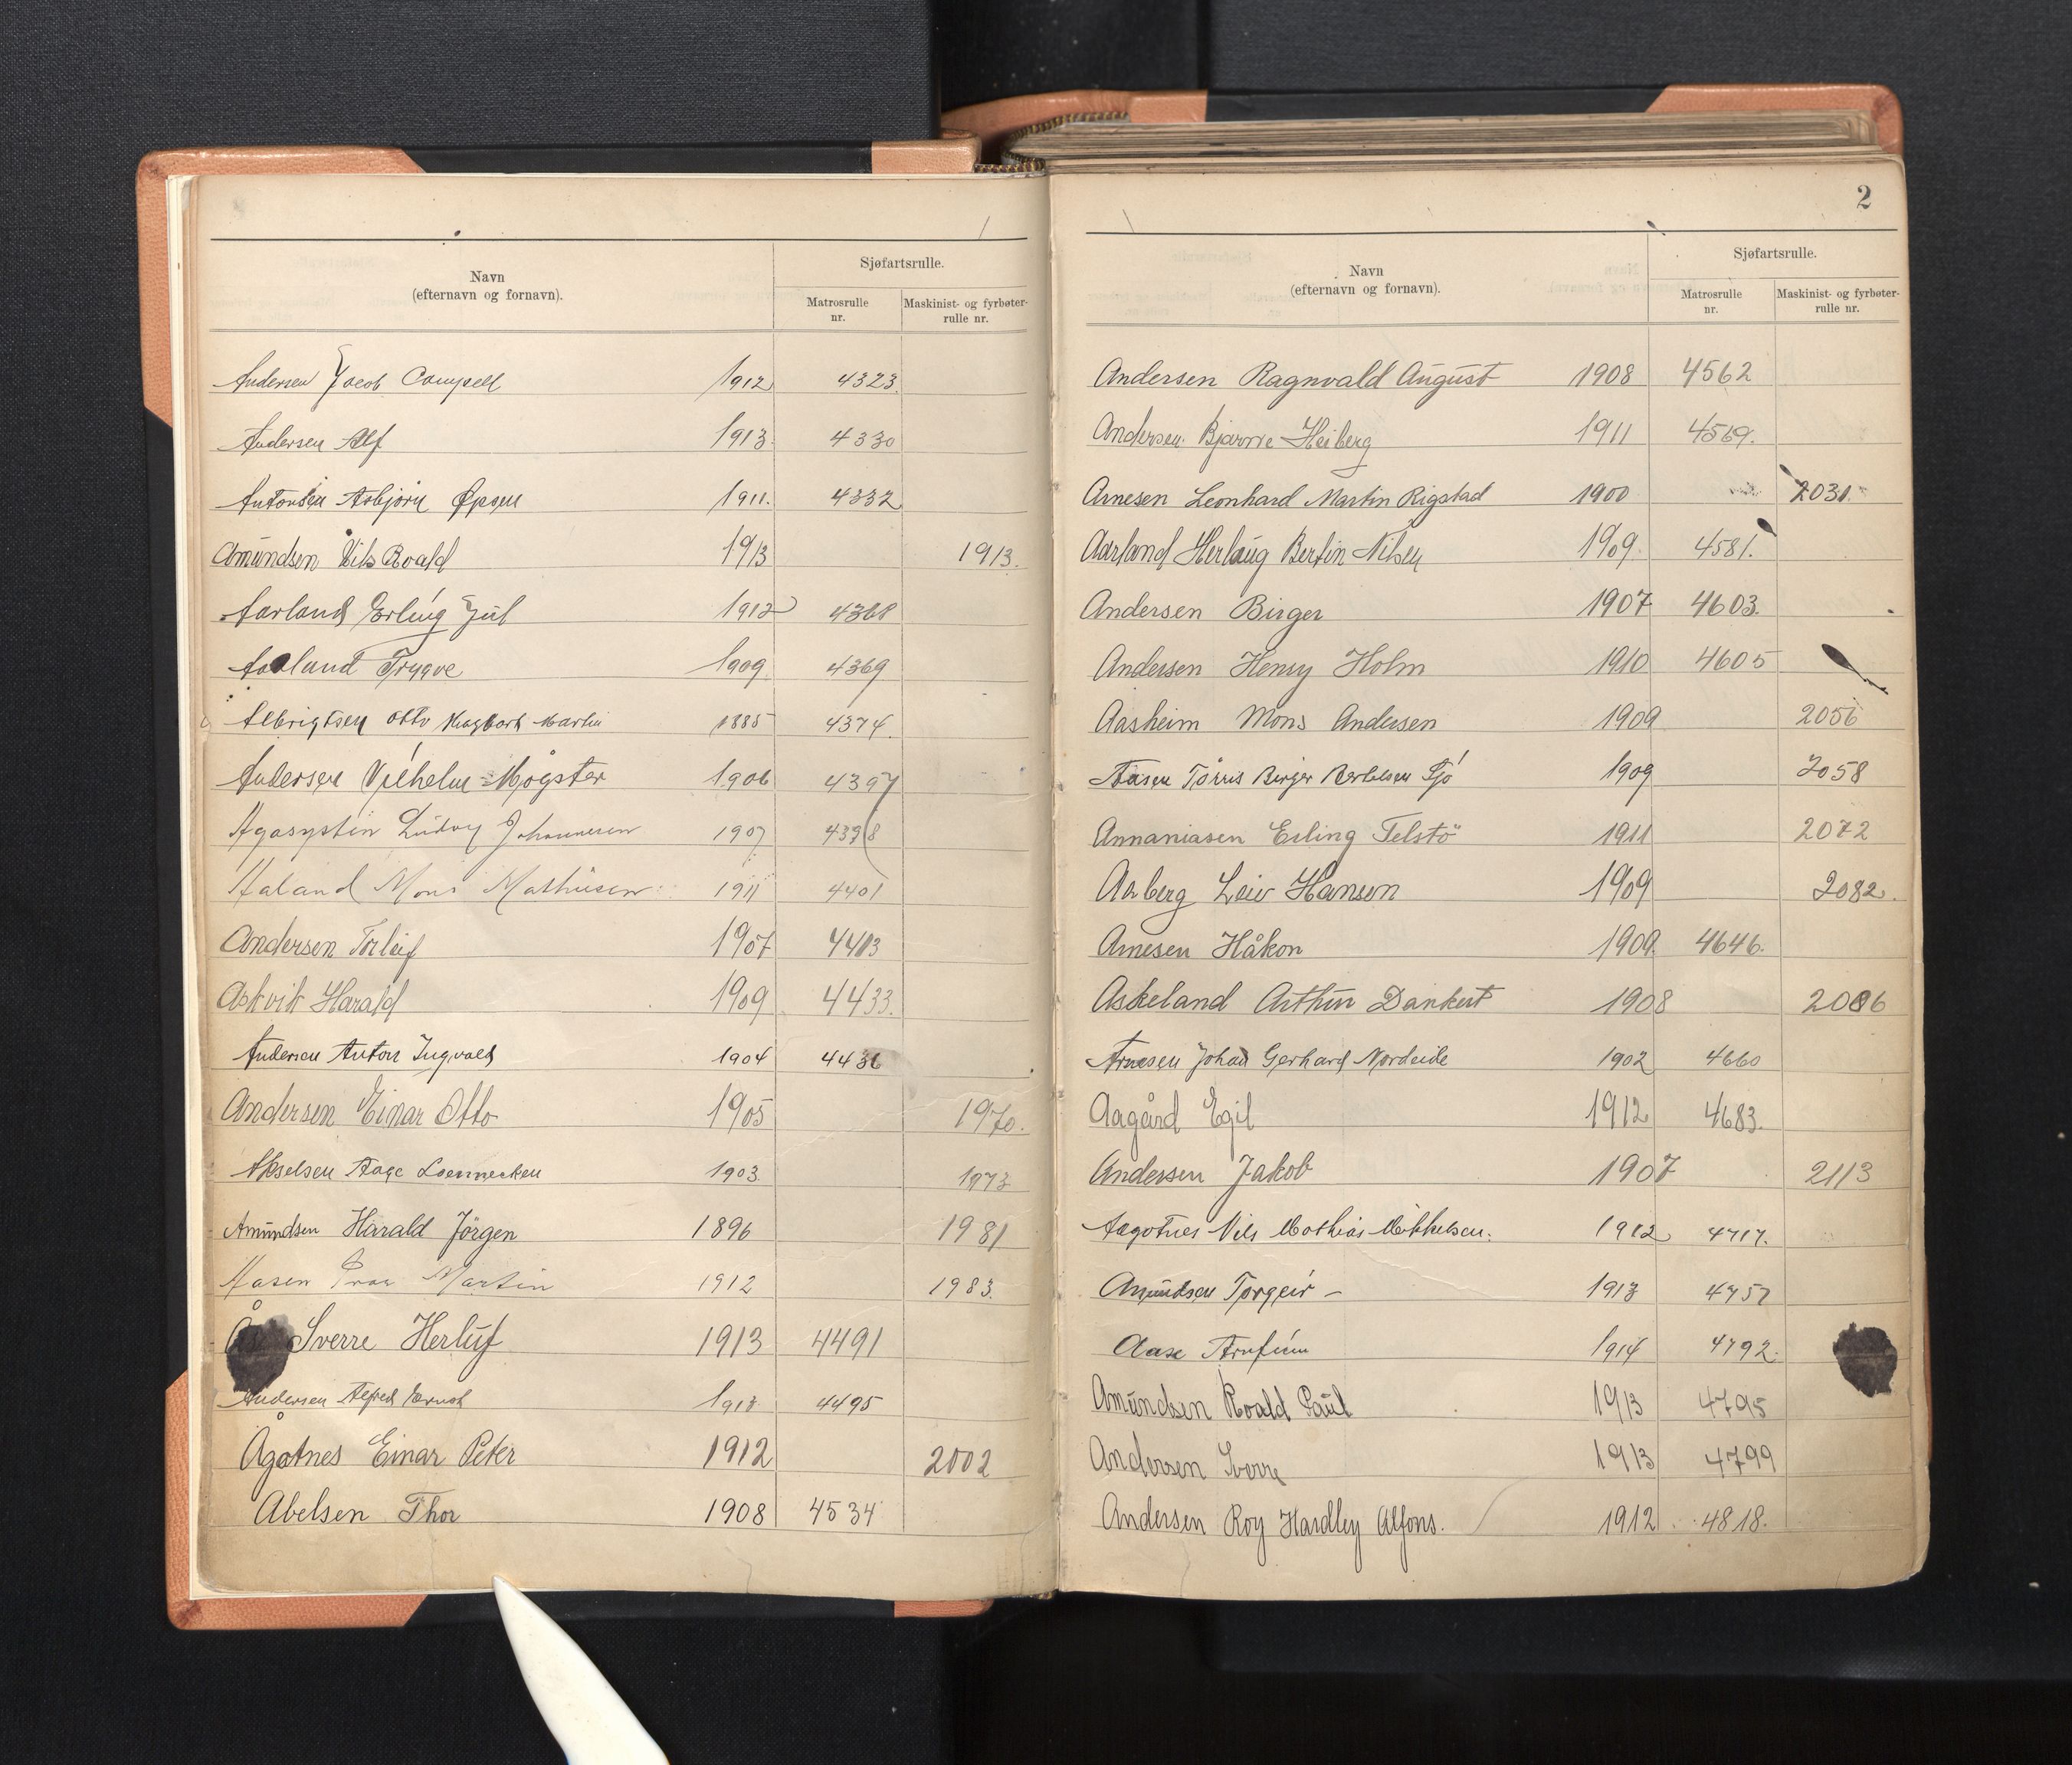 Navn
(efternavn og fornavn).
Sjøfartsrulle.
Matrosrulle
nr.
Maskinist- og fyrbøter-
rulle nr.
Andersen Jacob Campell 1912 4323
Andersen Alf 1913 4330
Antonsen Asbjörn 1911. 4332
Amundsen Nils Roald 1913 1913.
Aarland Erling Jul 1912 4368
Aarland Trygve 1909 4369
Albrigtsen Otto Hagbart Martin 1885 4374.
Andersen Vilhelm Møgster 1906 4397
Agasystin Ludvig Johannesen 1907 4398
Aaland Mons Mathiesen 1911 4401
Andersen Torleif 1907 4413
Askvik Harald 1909 4433.
Andersen Anton Ingvald 1904 4436
Andersen Einar Otto 1905 1970.
Akselsen Aage Loennecken 1903 1973
Amundsen Harald Jörgen 1896 1981
Aasen Martin 1912 1983.
Sverre Herluf 1913 4491
Andersen Alfred Ernst 1913 4495
Ågotnes Einar Peter 1912 2002
Abelsen Thor 1908 4534
2
Navn
(efternavn og fornavn).
Sjøfartsrulle.
Matrosrulle
nr.
Maskinist- og fyrbøter-
rulle nr.
Andersen Ragnvald August 1908 4562
Andersen Bjarne Heiberg 1911 4569.
Arnesen Leonhard Martin Rigstad 1900 2031.
Aarland Herlaug Bertin Nilsen 1909. 4581.
Andersen Birger 1907 4603.
Andersen Henry Holm 1910 4605
Aasheim Mons Andersen 1909 2056
Aasen Törris Birger Bertelsen 1909 2058
Annaniasen Erling Telstö 1911 2072
Aaberg Leiv Hanson 1909 2082.
Arnesen Håkon 1909. 4646.
Askeland Arthur Dankert 1908 2086
Arnesen Johan Gerhard Nordeide 1902 4660
Aagård Egil 1912 4683.
Andersen Jakob 1907 2113
Aagotnes Nils Mathias Mikkelsen. 1912 4717.
Amundsen Torgeir - 1913 4757
Aase Arnfinn 1914 4792.
Amundsen Roald Paul 1913 4795
Andersen Sverre 1913 4799
Andersen Roy Hardley Alfons. 1912 4818.